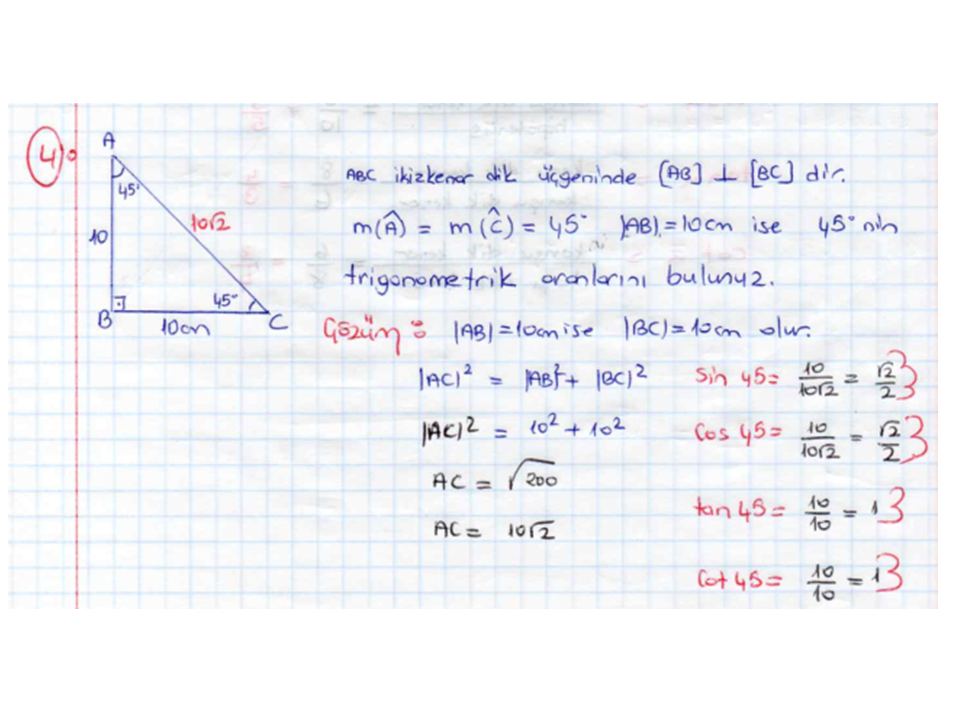 4.
A
45°
10√2
10
45°
B
10cm
C
ABC ikizkenar dik üçgeninde [AB] ⊥ [BC] dir.
m(Â) = m(Ĉ) = 45° |AB| = 10cm ise 45° nin
trigonometrik oranlarını bulunuz.
Çözüm: |AB| = 10cm ise |BC| = 10cm olur.
|AC|² = |AB|² + |BC|²
|AC|² = 10² + 10²
AC = √200
AC = 10√2
Sin 45 = 10/10√2 = √2/2 3
Cos 45 = 10/10√2 = √2/2 3
tan 45 = 10/10 = 1 3
Cot 45 = 10/10 = 1 3